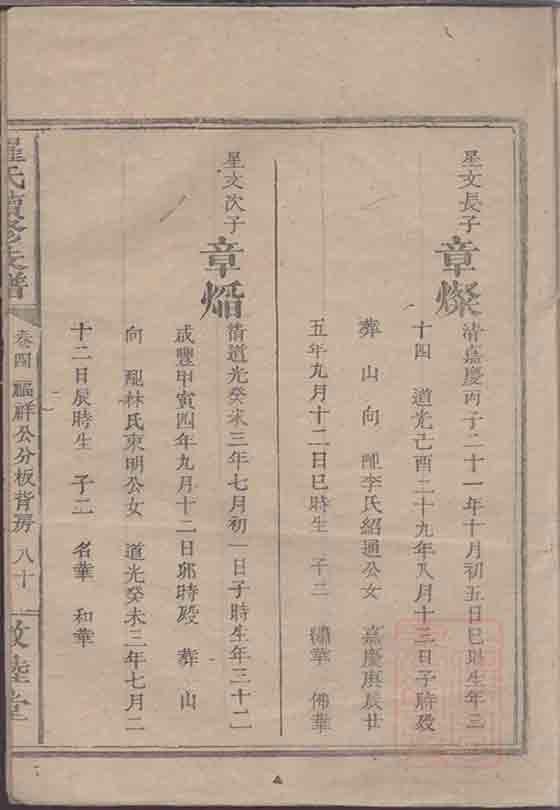 星文長子
章燦
清嘉慶丙子二十一年十月初五日巳時生年三
十四 道光己酉二十九年八月十三日子時歿
葬 山 向 配李氏紹通公女 嘉慶庚辰廿
五年九月十二日巳時生 子二 繡華 佛華
星文次子
章熖
清道光癸未三年七月初一日子時生年三十二
咸豐甲寅四年九月十二日卯時歿 葬 山
向 配林氏東明公女 道光癸未三年七月二
十二日辰時生 子二 名華 和華
羅氏續修支譜
卷四 公分板背房 八十
敦睦堂